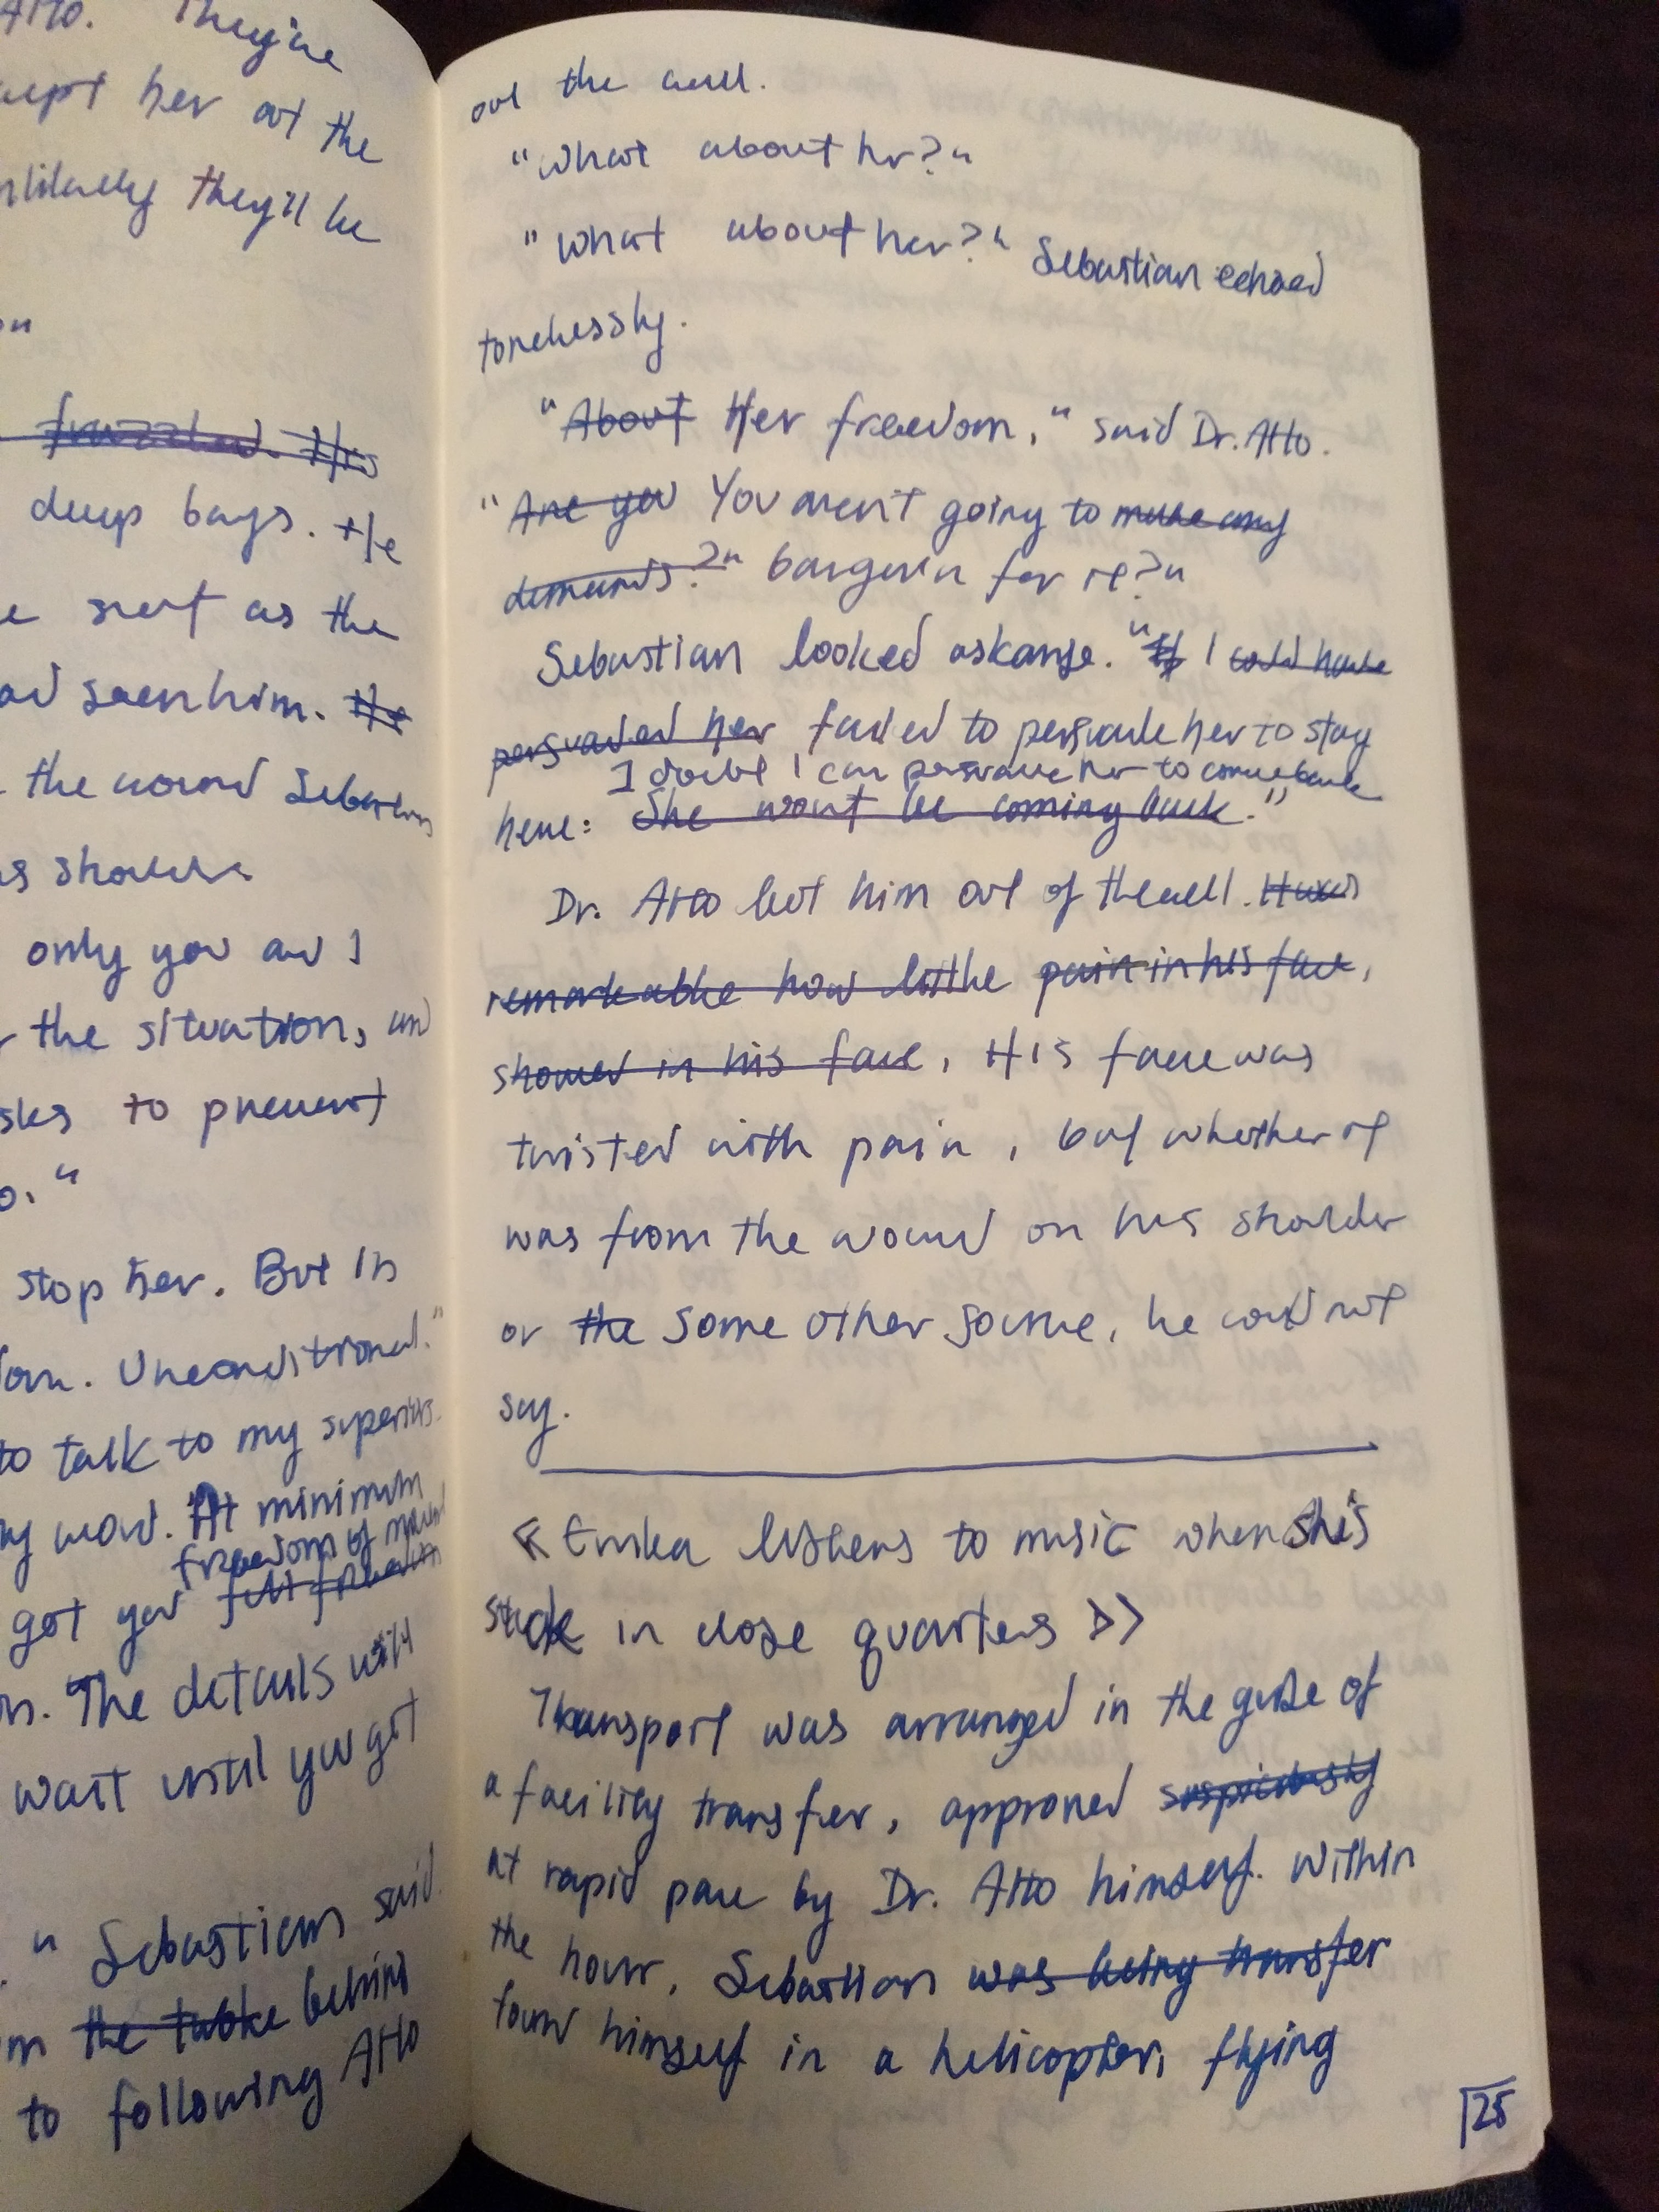 Atto. They've
kept her at the
they'll be
"
frazzled. His
deep bags. He
seat as the
seen him. He
the wound Sebastian
only you and I
the situation, and
to prevent
"
stop her. But in
Unconditional."
to talk to my superiors.
my word. At minimum
freedom of
got you full
The details will
wait until you got
" Sebastian said
the table behind
to following Atto
out the cell.
"What about her?"
"What about her?" Sebastian echoed
tonelessly.
"About Her freedom," said Dr. Atto.
"Are you You aren't going to make any
demands?" bargain for it?"
Sebastian looked askanse. "If I could have
persuaded her failed to persuade her to stay
I doubt I can persuade her to come back
here: She won't be coming back."
Dr. Atto let him out of the cell. It was
remarkable how little pain in his face,
showed in his face, His face was
twisted with pain, but whether it
was from the wound on his shoulder
or the some other source, he could not
say.
<< Erika listens to music when she's
stuck in close quarters >>
Transport was arranged in the guise of
a facility transfer, approved suspiciously
at rapid pace by Dr. Atto himself. Within
the hour, Sebastian was being transfer
found himself in a helicopter, flying
25